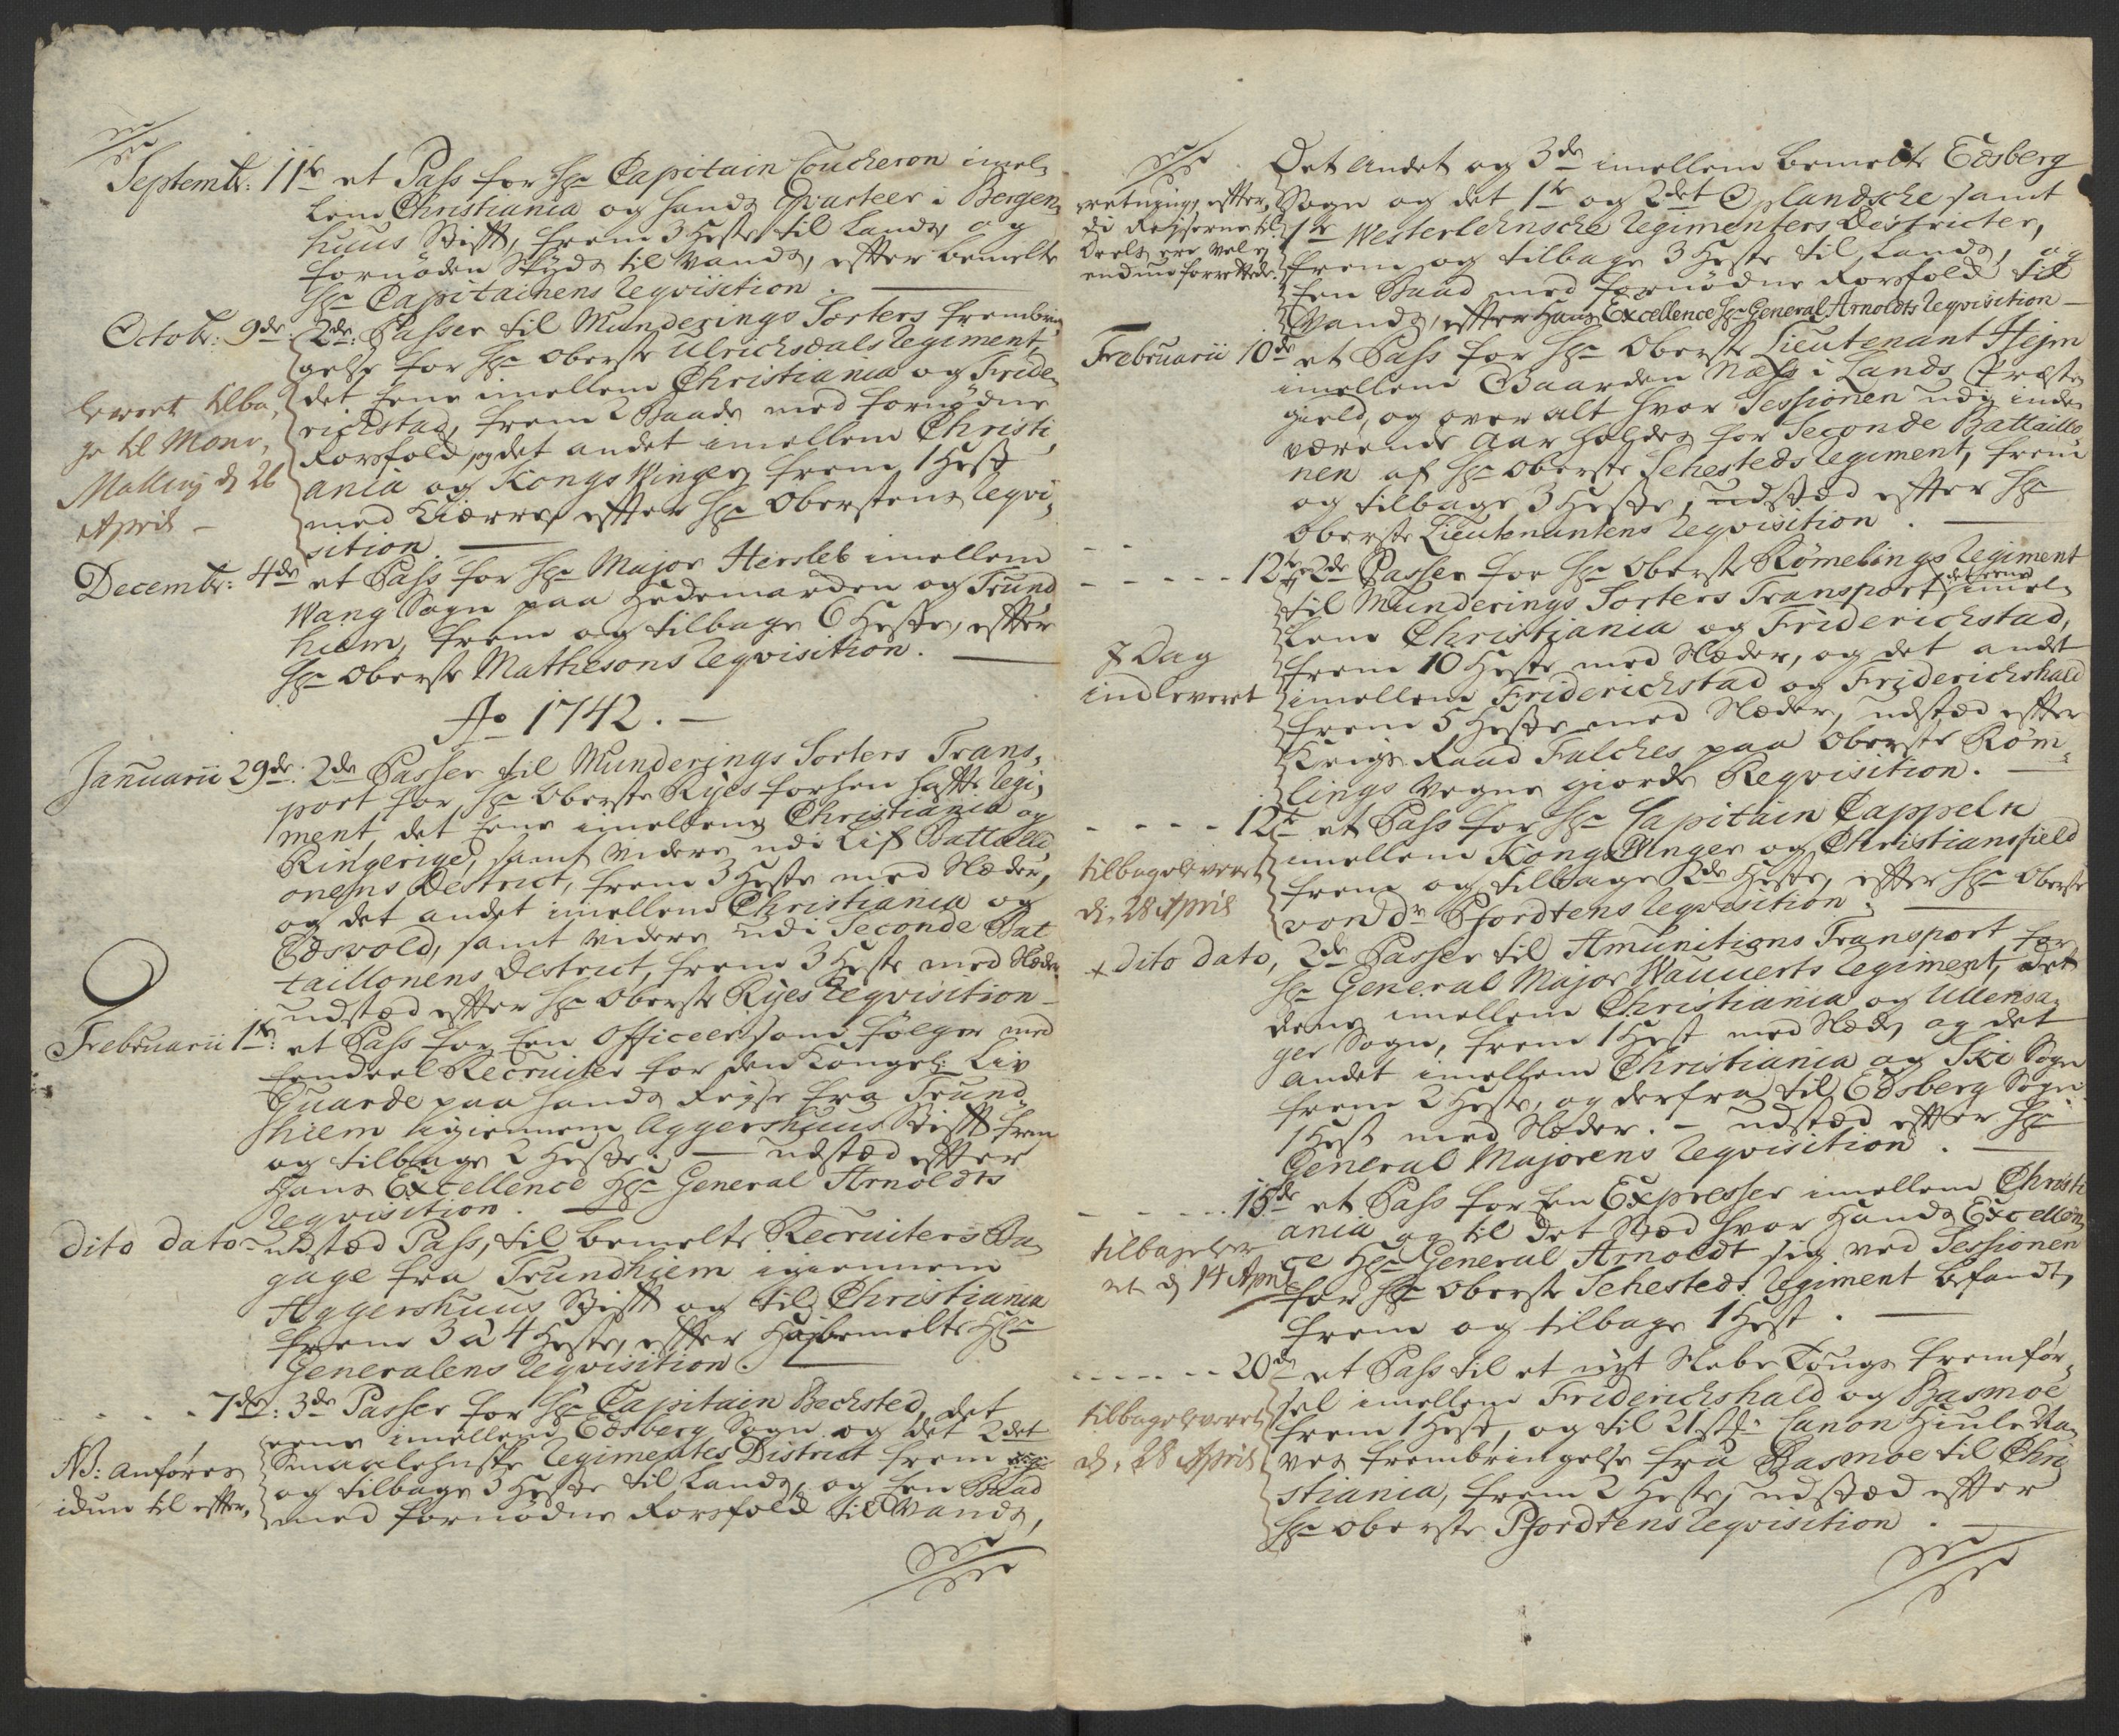 Septembr: 11te et Pass for Hr Capitain Coucheron imel-
lem Christiania og hands Qvarteer i Bergen-
huus Stifft, frem 3 Heste til Lands, og
fornøden Skyds til Vands, effter bemelte
Hr Capitainens Reqvisition.
Octobr: 9de: 2de: Passer til Munderings Sorters frembrin-
gelse for Hr Oberste Ulrichsdals Regiment,
det eene imellem Christiania og Fride-
richstad, frem 2 Baade med fornødne
Rorsfolk, og det andet imellem Christi-
ania og KongsWinger, frem 1 Hest
med Kiærre, effter Hr Oberstens Reqvi-
sition.
levert tilba-
ge til Monr.
Malling d 26
April
Decembr: 4de et Pass for Hr Major Hersleb imellem
Wang Sogn paa Hedemarken og Trund-
hiem, frem og tilbage 6 Heste, effter
Hr Oberste Mathesons Reqvisition.
Ao 1742.
Januarii 29de: 2de Passer til Munderings Sorters Trans-
port for Hr Oberste Ryes forhen hafte Regi-
ment, det eene imellem Christiania og
Ringerige, samt videre udi Lif Battailli-
onens District, frem 3 Heste med Slæder,
og det andet imellem Christiania og
Edsvold, samt videre udi Seconde Bat-
taillonens District, frem 3 Heste med Slæder
udstæd effter Hr Oberste Ryes Reqvisition
Februarii 1te: et Pass for een Officeer som følger med
eendeel Recruiter for den Kongel: Liv
Guarde paa hands Reyse fra Trund-
hiem igiennem Aggershuus Stifft frem
og tilbage 2 Heste. — udstæd effter
Hans Excellence Hr General Arnoldts
Reqvisition.
dito dato udstæd Pass, til bemelte Recruiters Ba-
gage fra Trundhiem igiennem
Aggershuus Stifft og til Christiania
frem 3 à 4 Heste, effter Højbemelte Hr
Generalens Reqvisition.
7de: 3de Passer for Hr Capitain Bechsted, det
eene imellem Edsberg Sogn og det 2det
Smaalehnske Regimentes District frem
og tilbage 3 Heste til Lands, og een Baad
med fornødne Rorsfolk til Vands,
NB: anføres
iblun til effter-
retnings effter,
di Reyserne til
Deels ere vel ey
endnu forrettede.
Det andet og 3de imellem bemelte Edsberg
Sogn og det 1te og 2det Oplandsche samt
1te Westerlehnsche Regimenters Districter,
frem og tilbage 3 Heste til Lands, og
een Baad med fornødne Rorsfolk til
Vands, effter Hans Excellence Hr General Arnoldts Reqvisition
Februarii 10de et Pass for Hr Oberste Lieutenant Hejm
imellem Gaarden Næss i Lands Præste-
gield, og over alt hvor Sessionen udj inde-
værende Aar holdes for Seconde Battaillo-
nen af Hr Oberste Schesteds Regiment, frem
og tilbage 3 Heste, udstæd effter Hr
Oberste Lieutenantens Reqvisition.
12te 2de Passer for Hr Oberste Rømelings Regiment
til Munderings Sorters Transport, det eene imel-
lem Christiania og Friderichstad,
frem 10 Heste med Slæder, og det andet
imellem Friderichstad og Friderichshald
frem 5 Heste med Slæder, udstæd effter
Krigs Raad Falches paa Oberste Røm-
lings vegne giorde Reqvisition.
Dag
indlevert
12te et Pass for Hr Capitain Cappeln
imellem KongsWinger og Christiansfield
frem og tilbage 2de Heste, effter Hr Oberste
von Dr Pfordtens Reqvisition.
tilbageleveret
d. 28 April
+ dito dato, 2de Passer til Amunitions Transport for
Hr General Major Wauuerts Regiment, det
eene imellem Christiania og Ullensa-
ger Sogn, frem 1 Hest med Slæde, og det
andet imellem Christiania og Ski Sogn
frem 2 Heste, og derfra til Edsberg Sogn
1 Hest med Slæder. — udstæd effter Hr
General Majorens Reqvisition.
15de et Pass for een Expresser imellem Christi-
ania og til det Stæd hvor Hands Excellen-
ce Hr General Arnoldt sig ved Sessionen
for Hr Oberste Schesteds Regiment befandt,
frem og tilbage 1 Hest.
tilbagelever-
et d 14 April
20de et Pass til et nyt Slebe Tougs fremfør-
sel imellem Friderichshald og Basmoe
frem 1 Hest, og til 21 st: Canon Hiule Na-
ves frembringelse fra Basmoe til Chri-
stiania, frem 2 Heste, udstæd effter
Hr Oberste Pfordtens Reqvisition.
tilbageleveret
d. 28 April